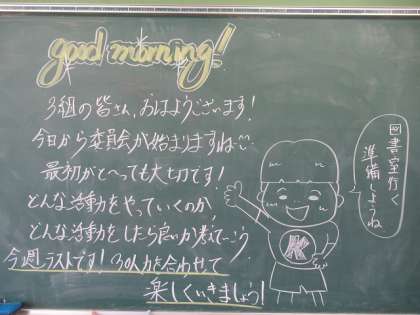 good morning!
3組の皆さん、おはようございます!
今日から委員会が始まりますね
最初がとーっても大切です!
どんな活動をやっていくのか、
どんな活動をしたら良いか考えてこう
今週ラストです!30人力を合わせて
楽しくいきましょう!
図書室行く
準備しようね
K